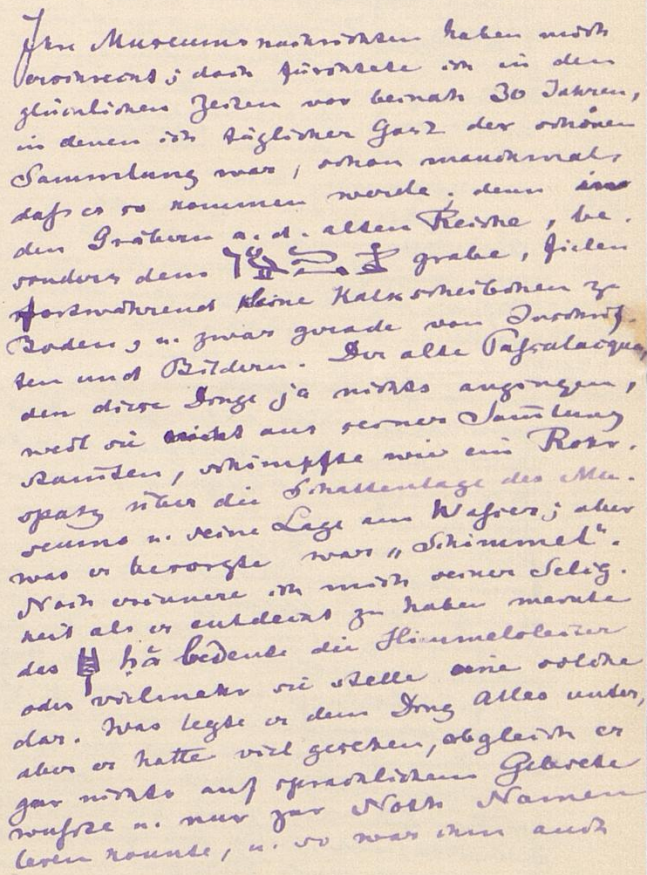 Ihre Museumsnachrichten haben mich
erschreckt; doch fürchtete ich in den
glücklichen Zeiten vor beinah 30 Jahren,
in denen ich täglicher Gast der schönen
Sammlung war, schon manchmal,
daß es so kommen werde; denn in
den Gräbern a. d. alten Reiche, be-
sonders dem grabe, fielen
fortwährend kleine Kalkscheibchen zu
Boden, u. zwar gerade von Inschrif-
ten und Bildern. Der alte Passalacqua,
den diese Dinge ja nichts angingen,
weil sie nicht aus seiner Samlung
stamten, schimpfte wie ein Rohr-
spatz über die Schattenlage des Mu-
seums u. seine Lage am Wasser; aber
was er besorgte war „Schimmel".
Noch erinnere ich mich seiner Selig-
keit als er entdeckt zu haben meinte
das ḥā bedeute die Himmelsleiter
oder vielmehr sie stelle eine solche
dar. Was legte er dem Ding Alles unter,
aber er hatte viel gesehen, obgleich er
gar nichts auf sprachlichem Gebiete
wußte u. nur zur Noth Namen
lesen konnte, u. so war ihm auch